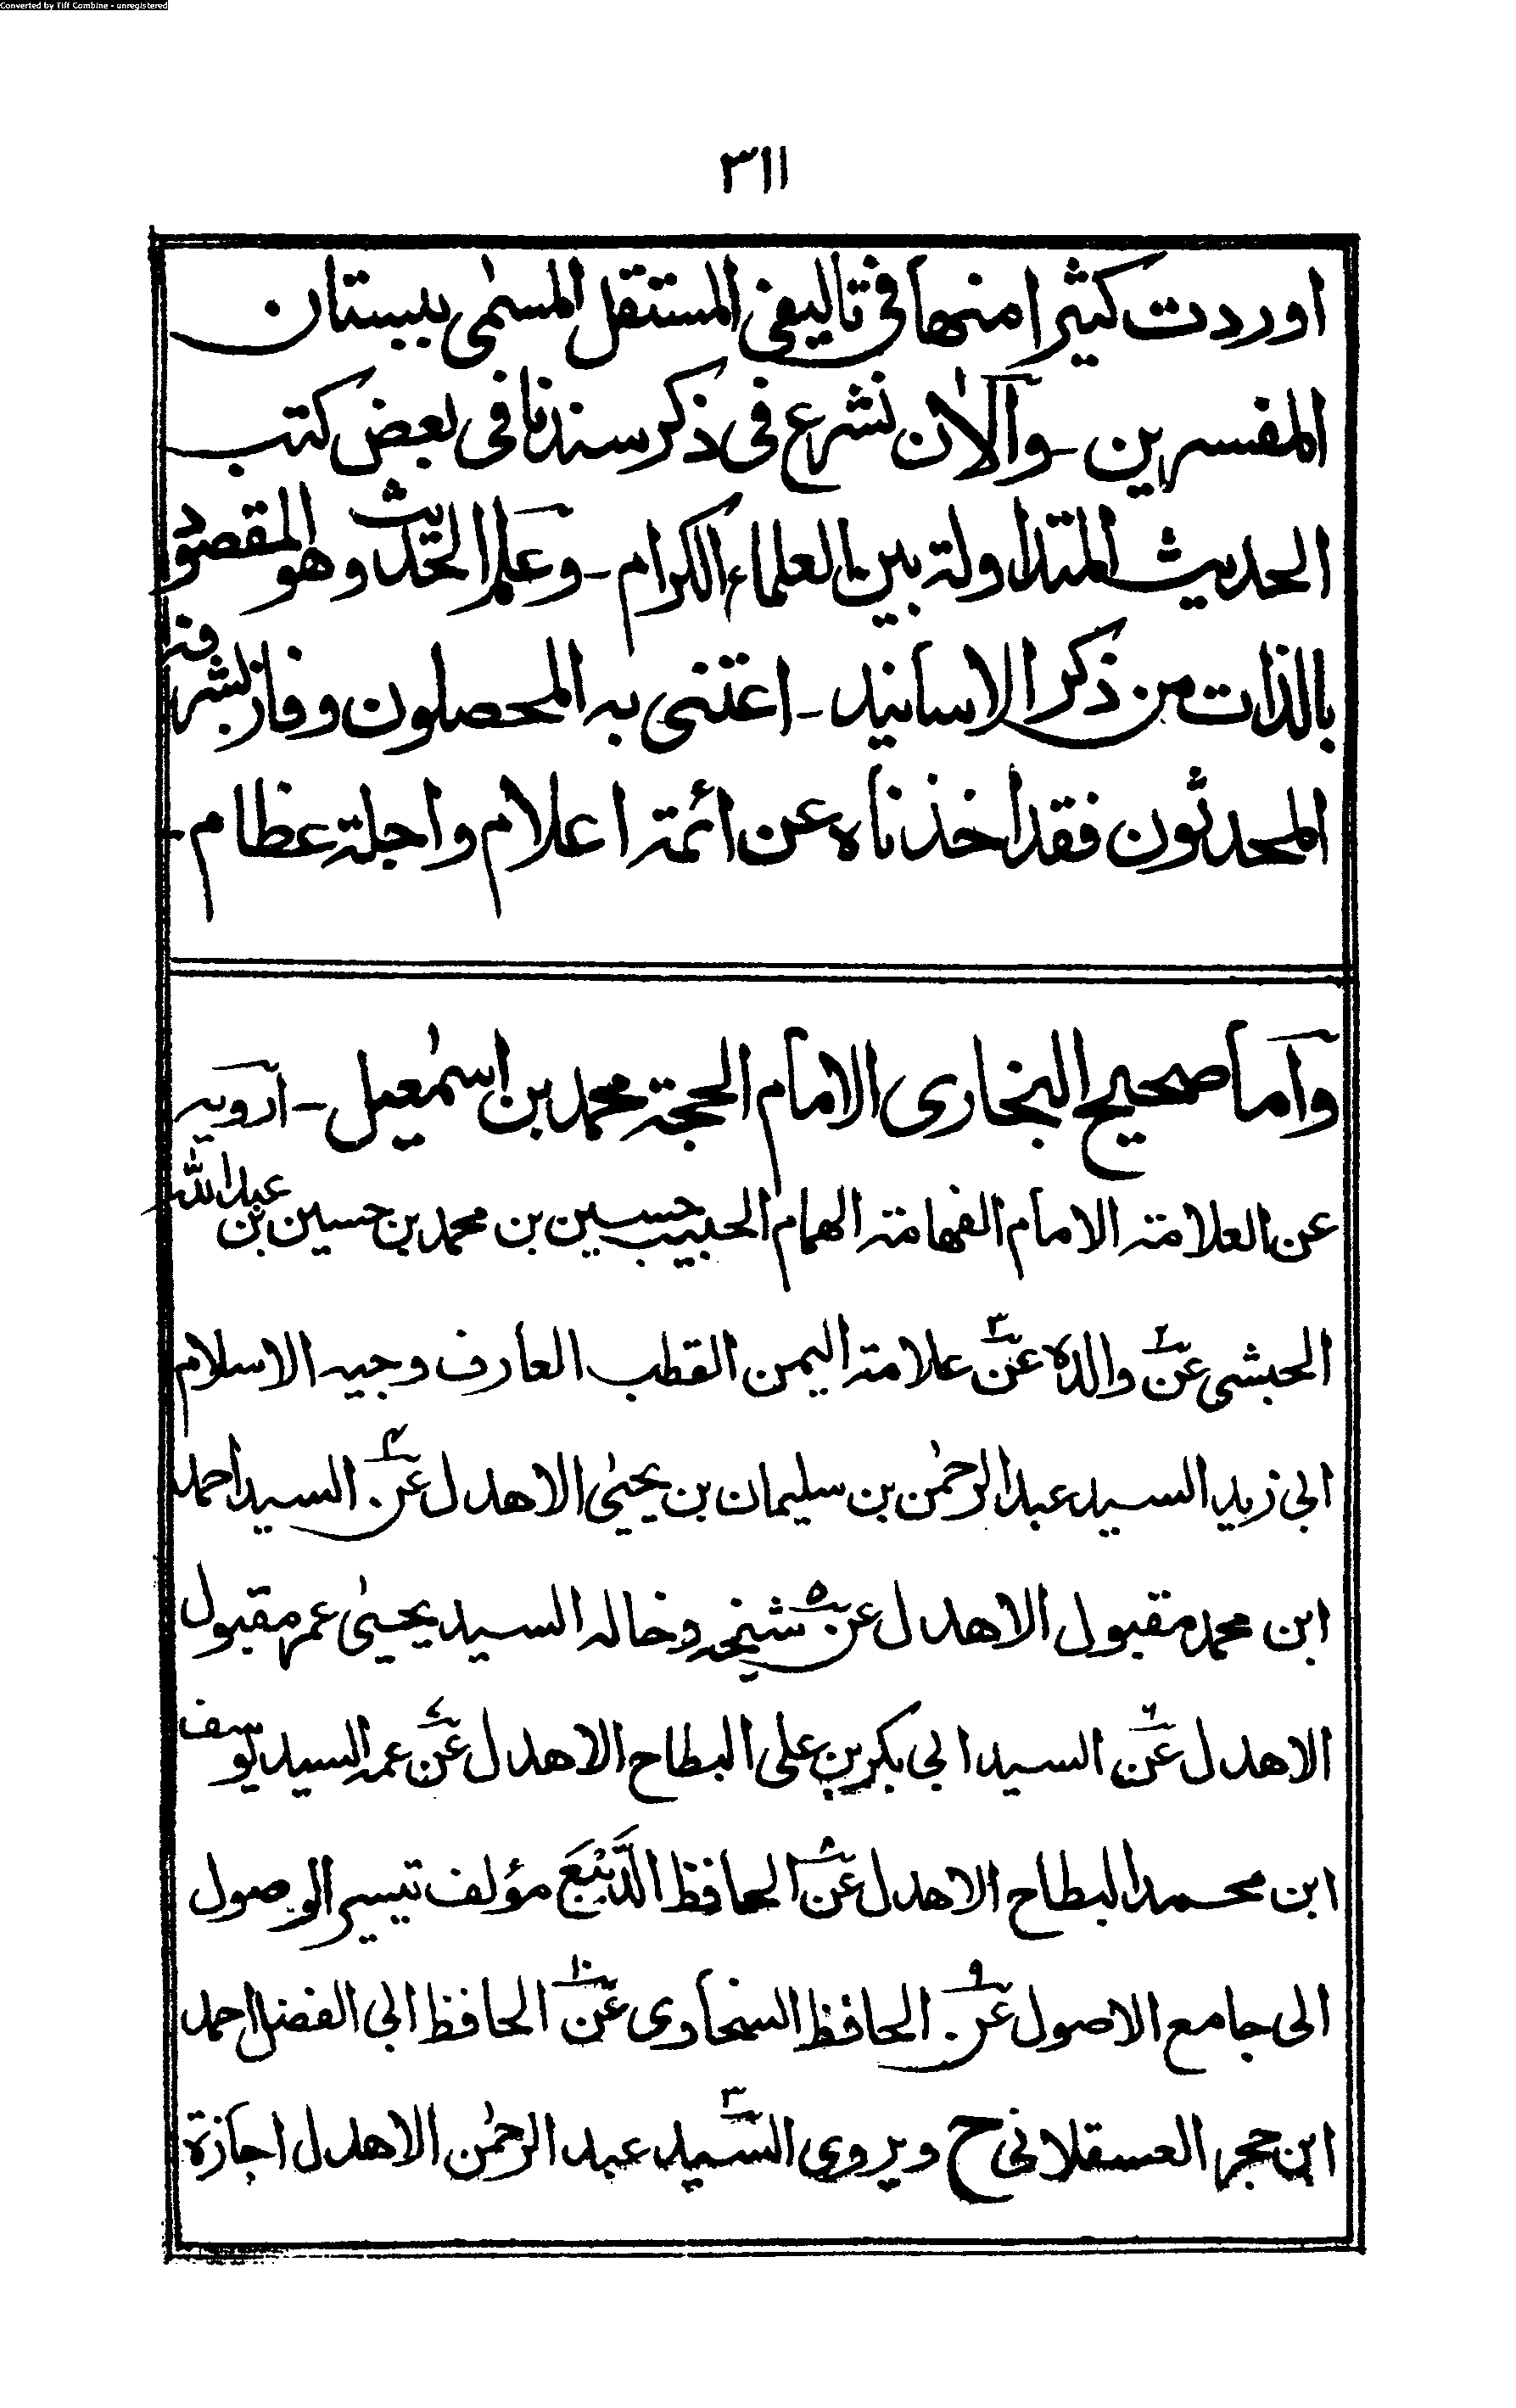 Converted by Tiff Combine - unregistered
٣١١
اوردت كثيرا منها في تاليفي المستقل المسمى ببستان
المفسرين - والآن نشرع في ذكر سندنا في بعض كتب
الحديث المتداولة بين العلماء الكرام - وعلم الحديث وهو المقصود
بالذات من ذكر الاسانيد - اعتنى به المحصلون وفاز بشرفه
المحدثون فقد اخذناه عن ائمة اعلام واجلة عظام -
وأما صحيح البخاري الامام الحجة محمد بن اسمٰعيل - أرويه
عن العلامة الامام الفهامة الهمام الحبيب حسين بن محمد بن حسين بن عبد الله
الحبشي عن٢ والده عن٣ علامة اليمن القطب العارف وجيه الاسلام
ابي زيد السيد عبد الرحمٰن بن سليمان بن يحيىٰ الاهدل عن٤ السيد احمد
ابن محمد مقبول الاهدل عن٥ شيخه وخاله السيد يحيىٰ عمر مقبول
الاهدل عن٦ السيد ابي بكر بن علي البطاح الاهدل عن٧ عمه السيد يوسف
ابن محمد البطاح الاهدل عن٨ الحافظ الدَّيْبَع مؤلف تيسير الوصول
الى جامع الاصول عن٩ الحافظ السخاوي عن١٠ الحافظ ابي الفضل احمد
ابن حجر العسقلاني ح ويروي السيد٣ عبد الرحمٰن الاهدل اجازة